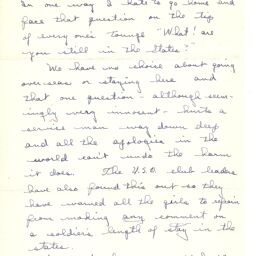 In one way I hate to go home and
face that question on the tip
of every one's tounge "What! are
you still in the States?"
"We have no choice about going
overseas or staying here and
that one question - although seem-
ingly very innocent - hurts a
service man way down deep
and all the apologies in the
world can't undo the harm
it does. The U.S.O. club leaders
have also found this out so they
have warned all the girls to refrain
from making any comment on
a soldier's length of stay in the
states.